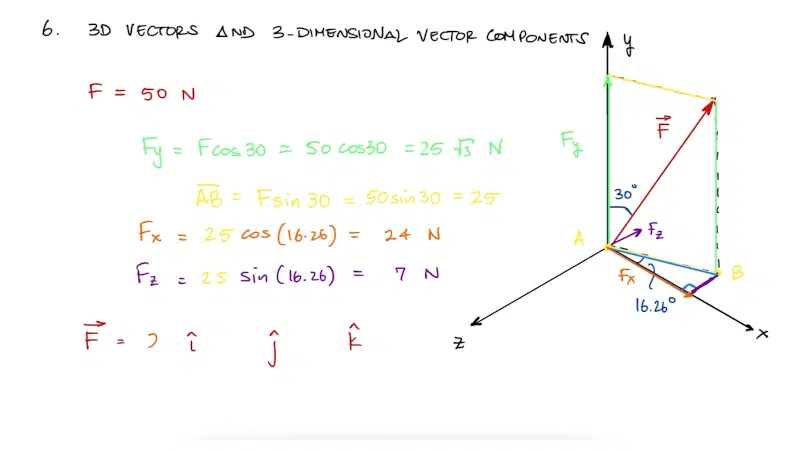 6. 3D VECTORS AND 3-DIMENSIONAL VECTOR COMPONENTS
F = 50 N
Fy = Fcos30 = 50cos30 = 25√3 N
A̅B̅ = Fsin30 = 50sin30 = 25
Fx = 25 cos(16.26) = 24 N
Fz = 25 sin(16.26) = 7 N
F⃗ = î ĵ k̂
y
Fy
F⃗
30°
Fz
A
Fx
B
16.26°
z
x